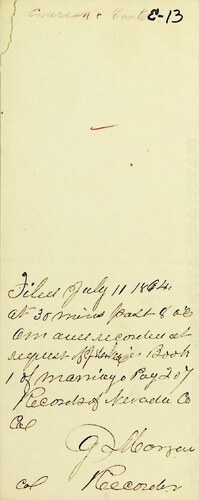 Emerson & E-13
Filed July 11 1864
at 30 mins past 8 o'c
am and recorded at
request of in Book
1 of marriage Pag 207
Records of Nevada Co
Cal
Morgan
Col Recorder